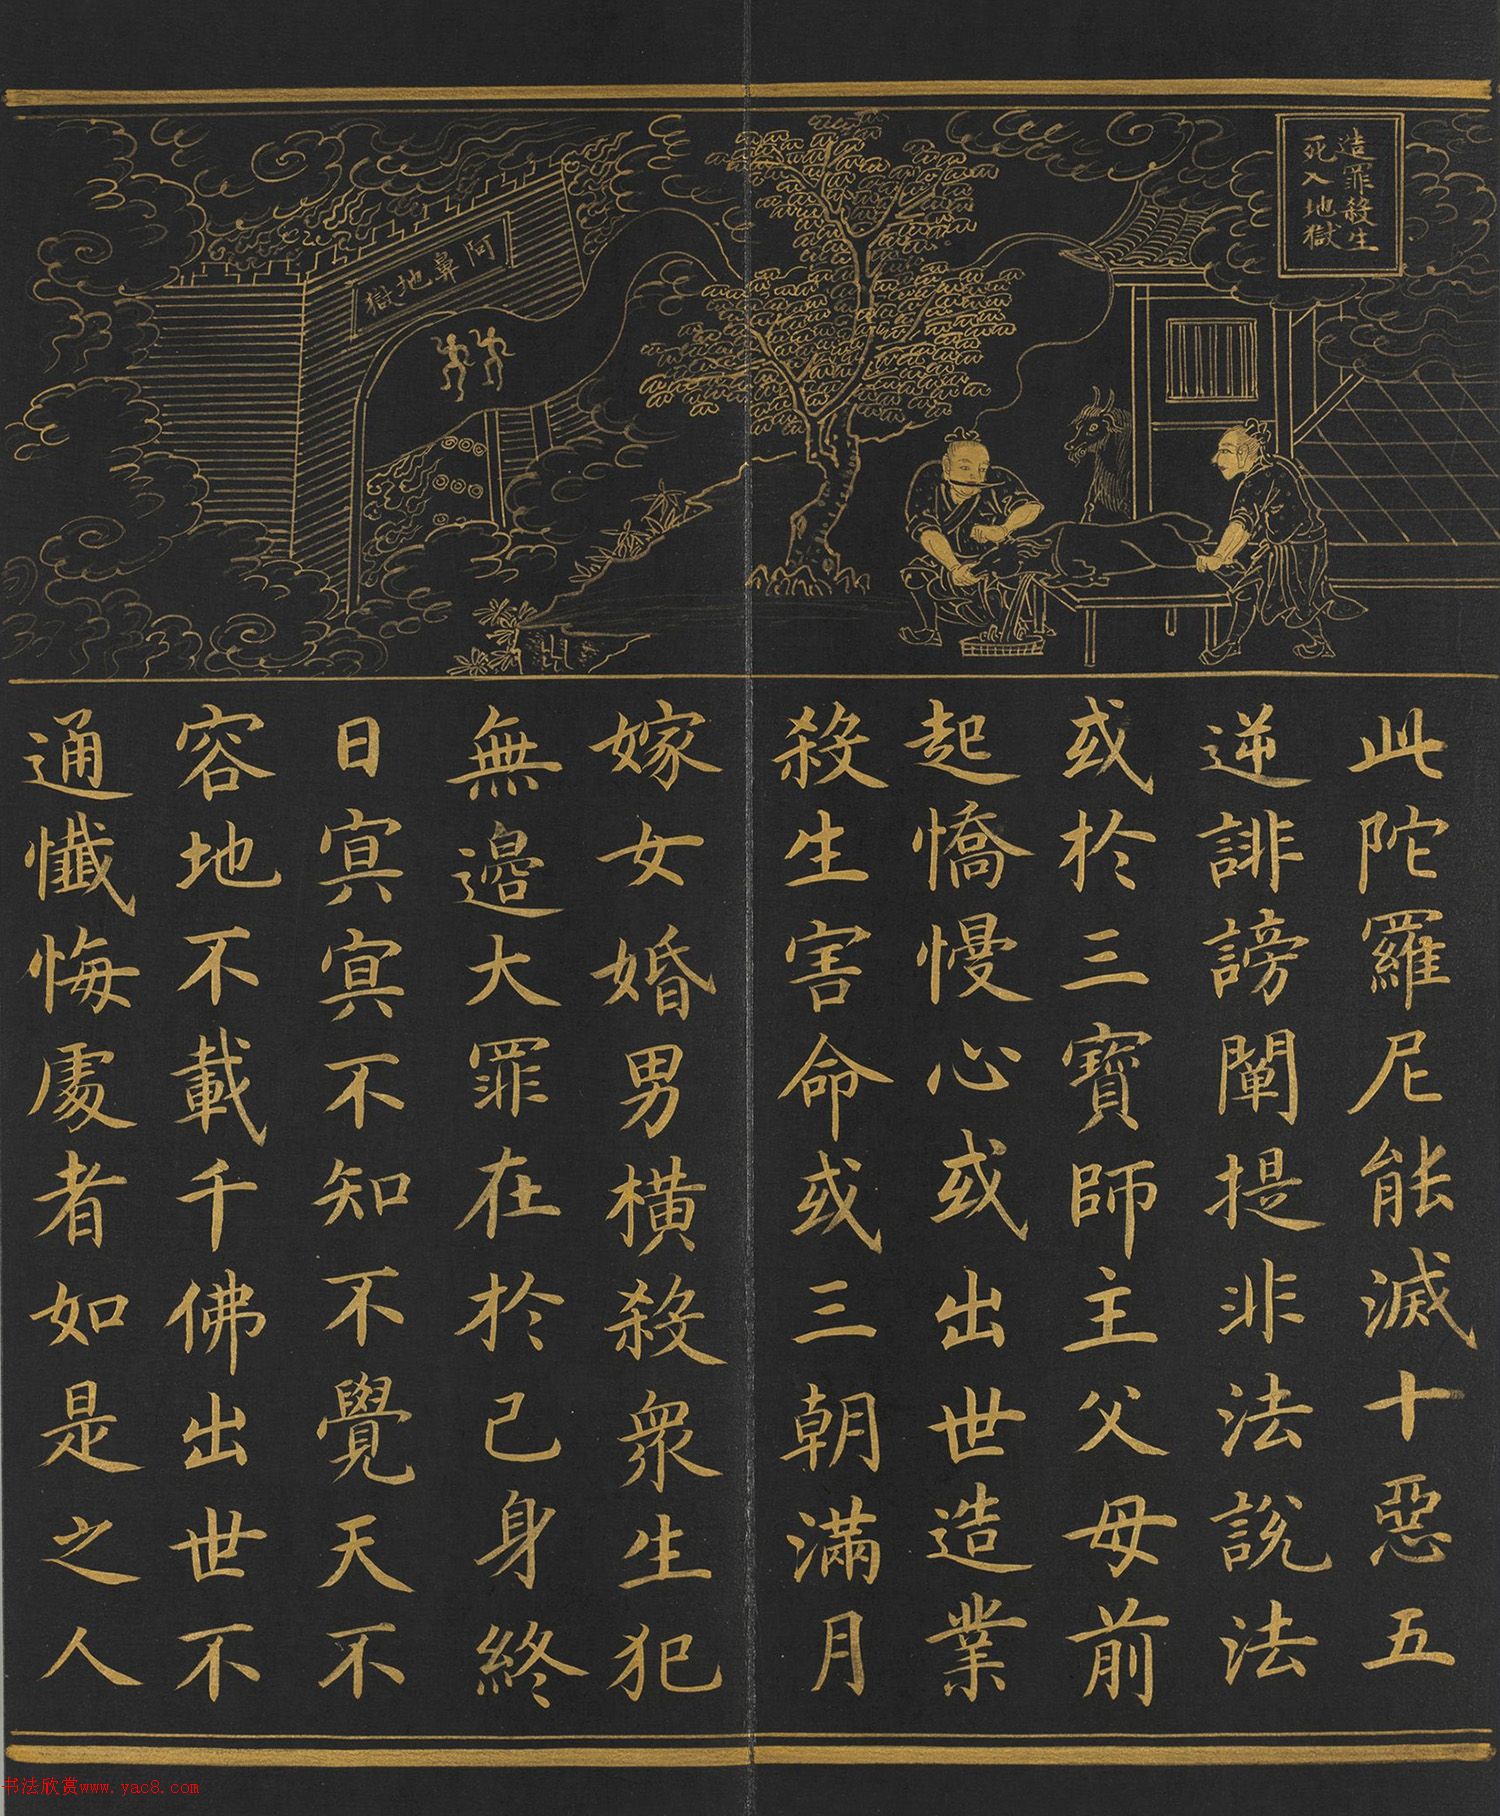 造罪殺生
死入地獄
阿鼻地獄
此陀羅尼能滅十惡五
逆誹謗闡提非法說法
或於三寶師主父母前
起憍慢心或出世造業
殺生害命或三朝滿月
嫁女婚男橫殺衆生犯
無邊大罪在於己身終
日冥冥不知不覺天不
容地不載千佛出世不
通懺悔處者如是之人
书法欣赏www.yac8.com